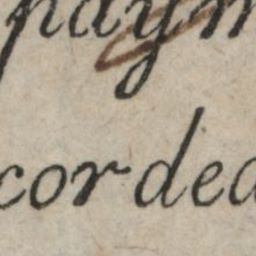 paym
corded